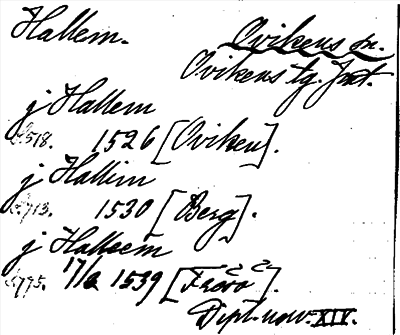 Hallem. Ovikens sn.
Ovikens tg. Jmt.
j Hallem
s. 518. 1526 [Oviken].
j Hallim
s. 713. 1530 [Berg].
j Hallsem
s. 775. 17/2 1539 [Frösö].
Dipl. norv. XIV.